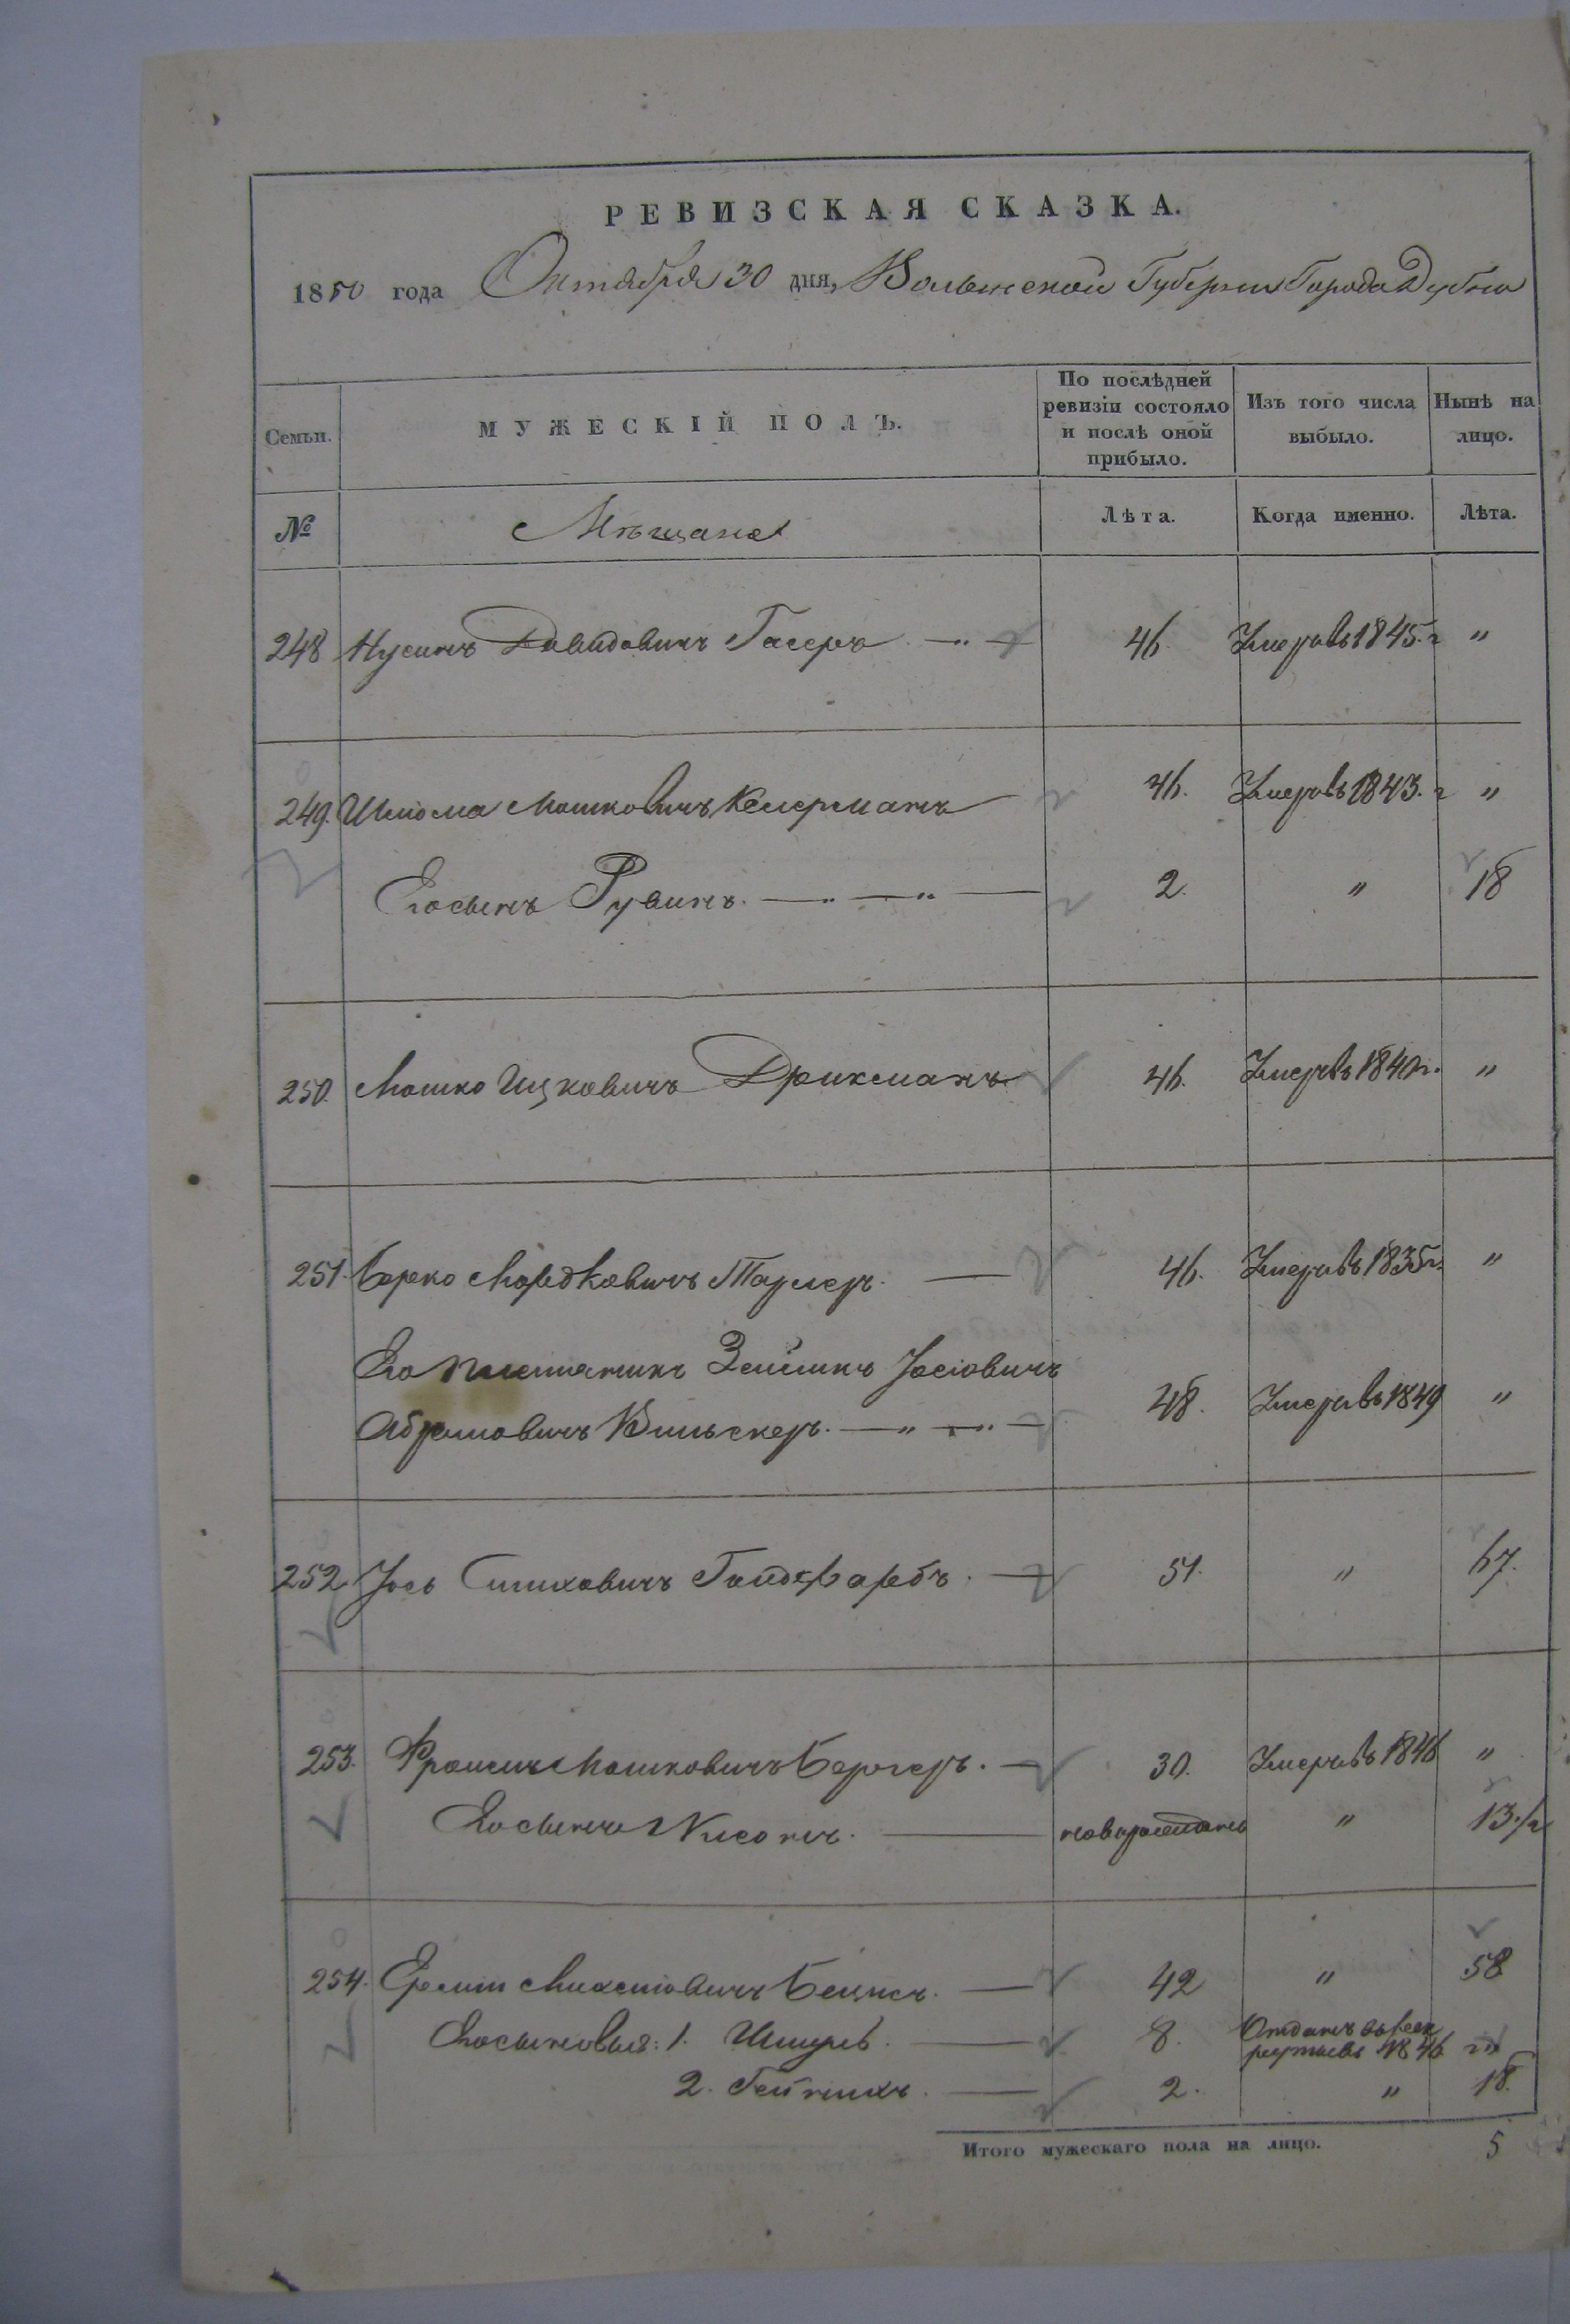 РЕВИЗСКАЯ СКАЗКА.
1850 года Октября 30 дня, Волынской Губернiи Города Дубно
Семьи.
МУЖЕСКIЙ ПОЛЪ.
По послѣдней ревизiи состояло и послѣ оной прибыло.
Изъ того числа выбыло.
Нынѣ на лицо.
№ Мѣщане Лѣта. Когда именно. Лѣта.
248 Нусинъ Давидовичъ Гасеръ 46 Умеръ въ 1845. г "
249. Шлiома Мошковичъ Келерманъ 46. Умеръ въ 1843. г "
Его сынъ Рувинъ. 2. " 18
250. Мошко Ицковичъ Дриксманъ 46. Умеръ въ 1840 г. "
251. Берко Мордковичъ Тармеръ. 46. Умеръ въ 1835 г. "
Его племянникъ Зейликъ Iосiовичъ
Абрамовичъ Вильскеръ. 48. Умеръ въ 1849 "
252 Iось Гольдфарбъ. 51. " 67.
253. Фроимъ Мошковичъ Бергеръ. 30. Умеръ въ 1846 "
Его сынъ Нисонъ. новорожденъ " 13. 1/2
254. Михелiовичъ 42 " 58
Его сыновья: 1. Шмуль. 8. Отданъ въ рек
руты въ 1846 г "
2. 2. " 18.
Итого мужескаго пола на лицо. 5